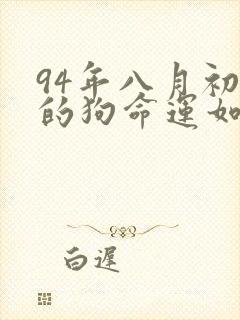 94年八月初
的狗命运如
白遅